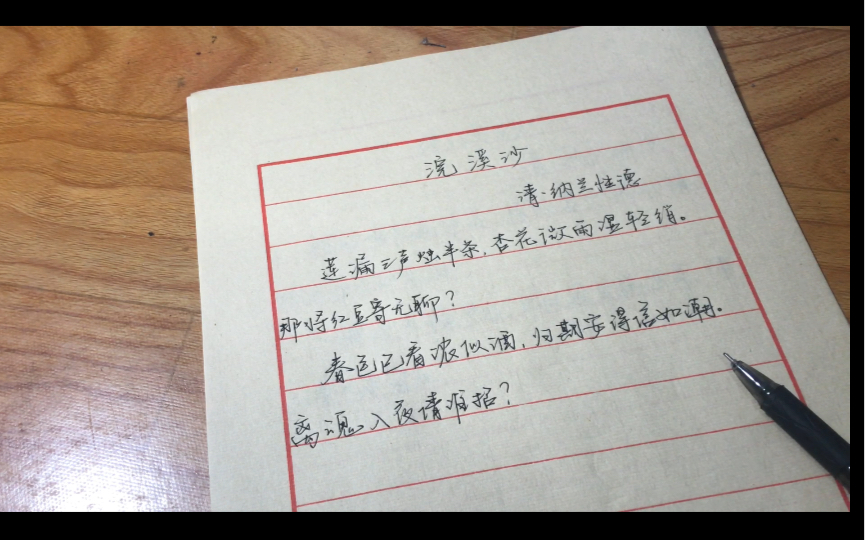 浣溪沙
清·纳兰性德
莲漏三声烛半条,杏花微雨湿轻绡。
那将红豆寄无聊?
春色已看浓似酒,归期安得信如潮。
离魂入夜倩谁招?